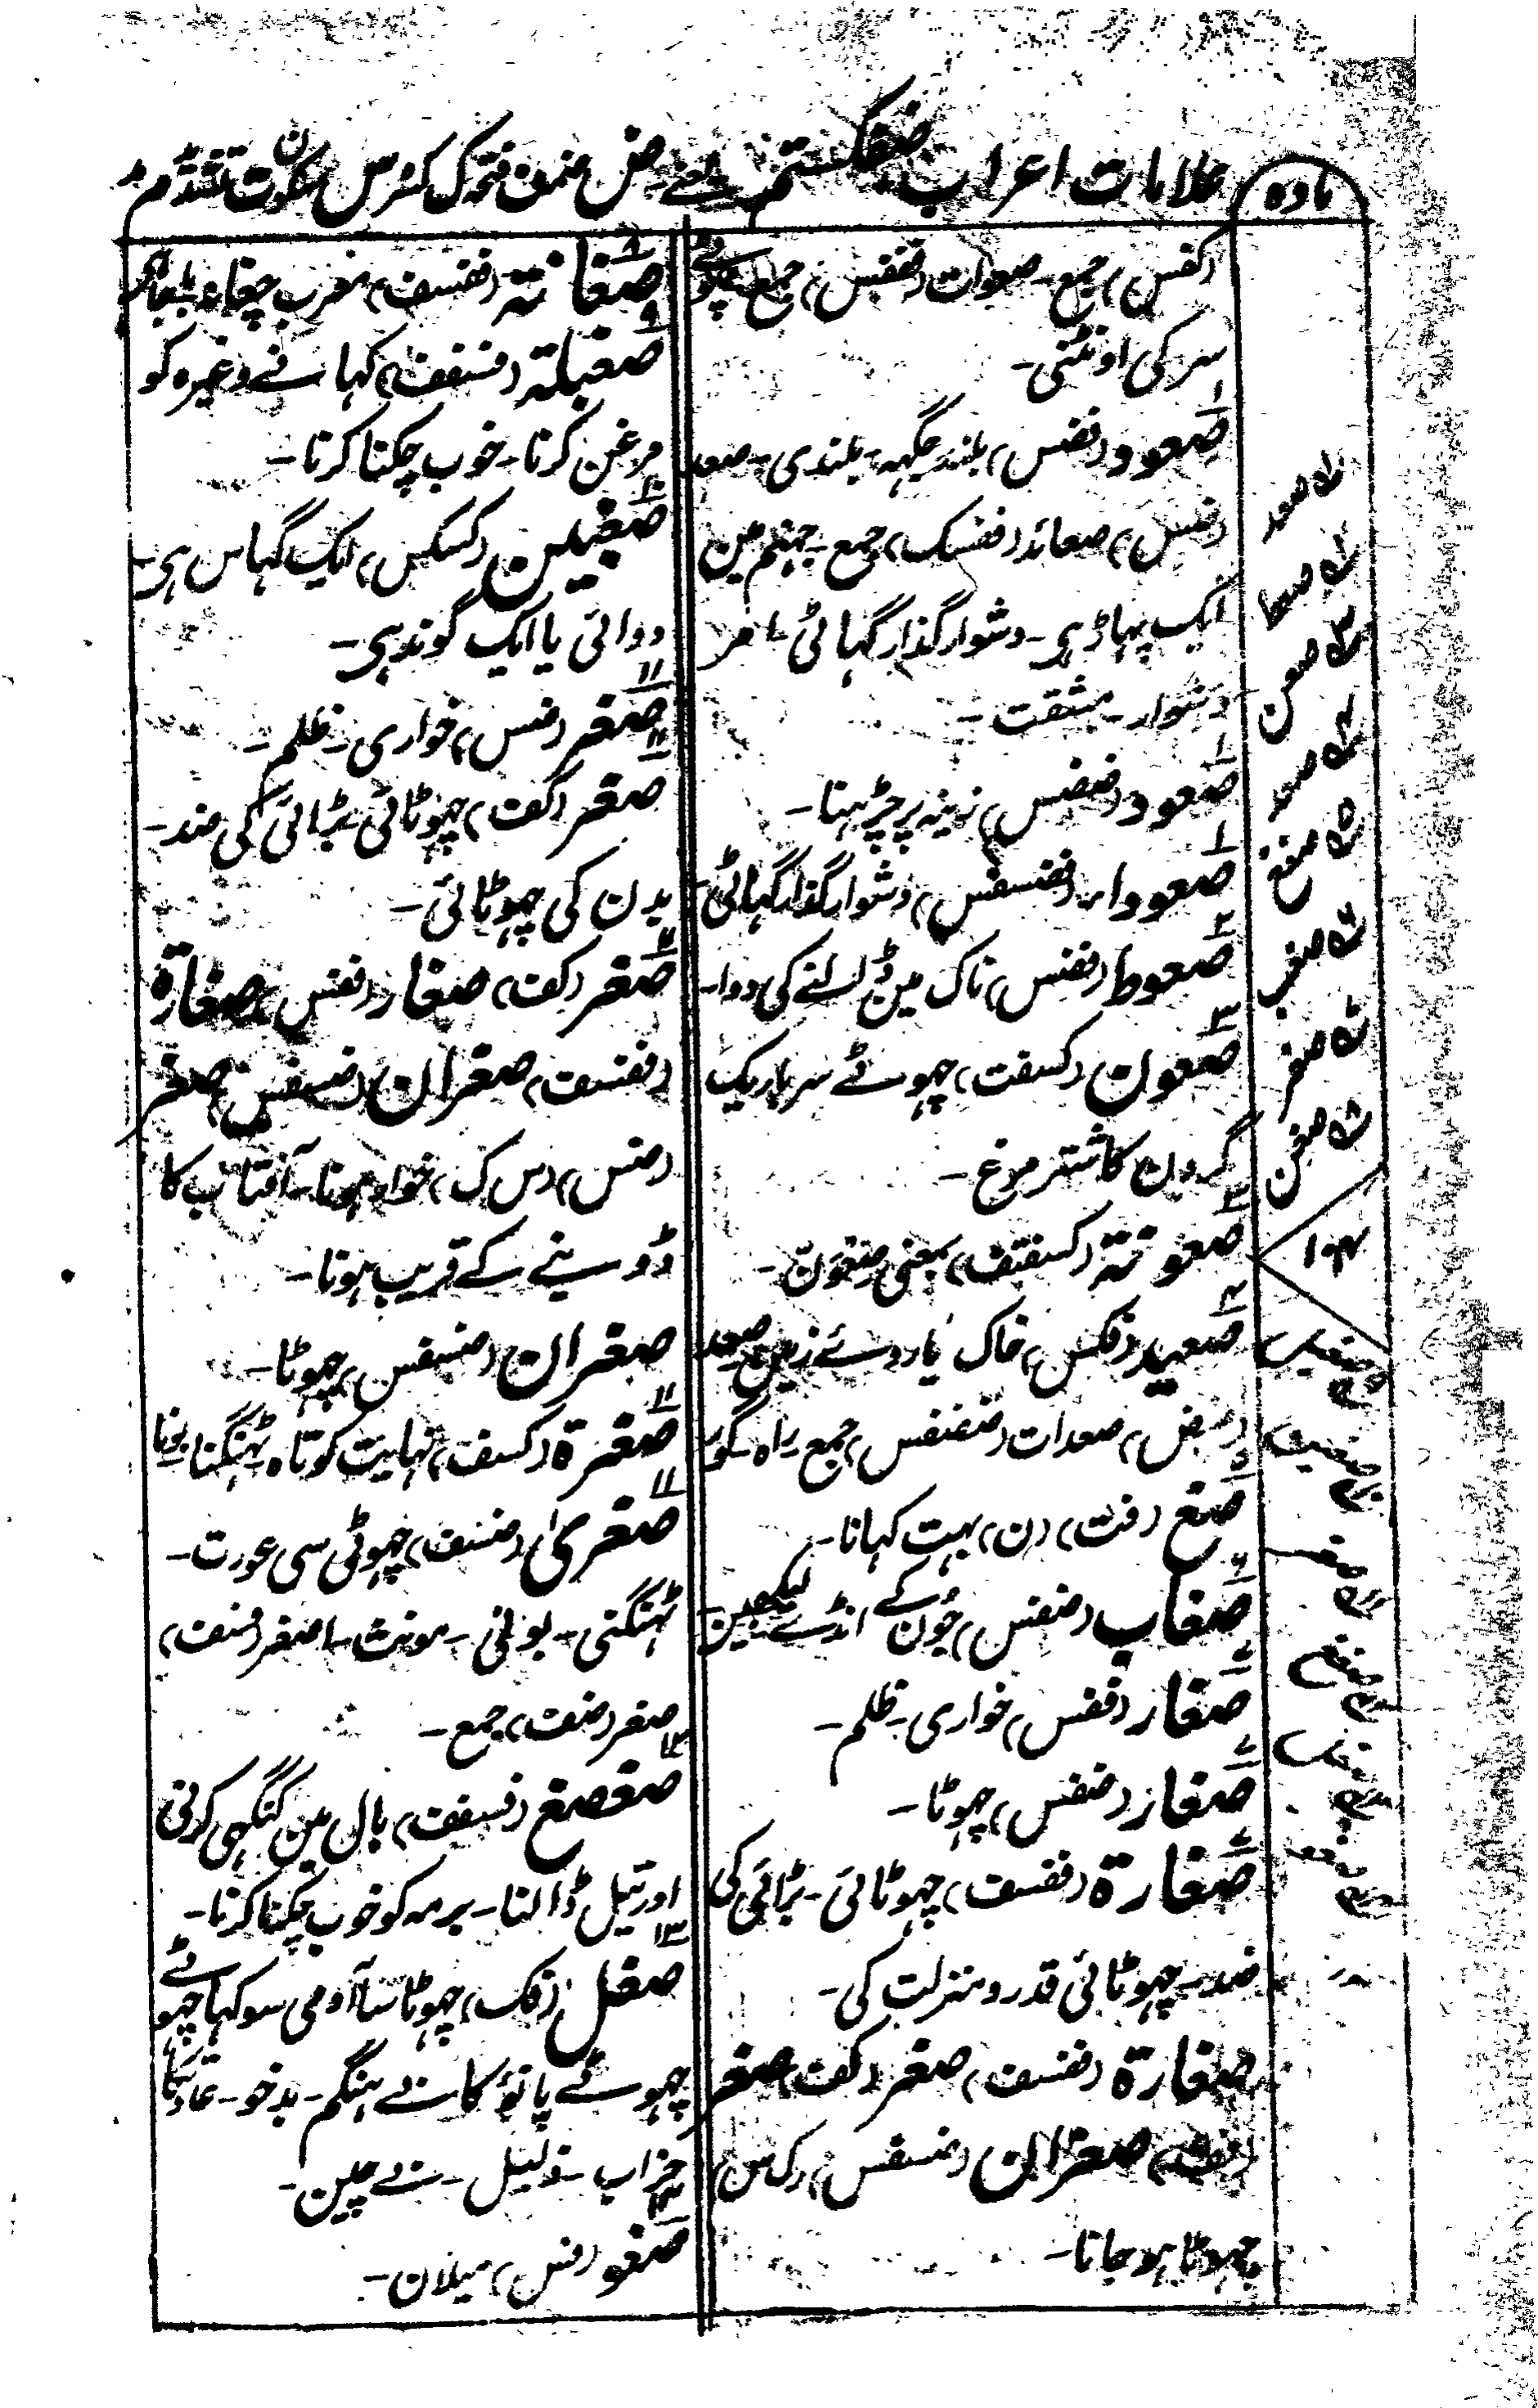 مادہ
علامات اعراب ضفکستم یعنے ض ضمہ ف فتحہ ک کسرہ س سکون ت تشدید م مد
(کفس) جمع۔ صعوات (ففقس) جمع۔ چھوٹے
سر کی اونٹنی۔
صعود (فضس) بلند جگہہ۔ بلندی۔ صعد
(ضس) صعائد (ففسک) جمع۔ جہنم مین
ایک پہاڑ ہی۔ دشوار گذار گہاٹی۔ امر
دشوار۔ مشقت۔
صعود (ضضس) زینہ پر چڑہنا۔
صعوداء (فضسفس) دشوار گذار گہاٹی۔
صعوط (فضس) ناک مین ڈالنے کی دوا۔
صعون (کسفت) چہوٹے سر باریک
گردن کا شتر مرغ۔
صعونة (کسفتف) بمعنی صعون۔
صعید (فکس) خاک یا روئے زمین۔ صعد
(ضض) صعدات (ضضفس) جمع۔ راہ۔ گور
صغ (فت) (ن) بہت کہانا۔
صغاب (ضفس) جُون کے انڈے لیکھین۔
صغار (ففس) خواری۔ ظلم۔
صغار (ضفس) چہوٹا۔
صغارة (ففسف) چہوٹائی۔ بڑائی کی
ضد۔ چہوٹائی قدر و منزلت کی۔
صغارة (ففسف) صغر (کف) صغر
صغران (ضسفس) (ک س ن)
چہوٹا ہو جانا۔
صغانة (ففسف) معرب چغانہ باجا
صغبلة (فسفف) کہانے وغیرہ کو
مرغن کرنا۔ خوب چکنا کرنا۔
صغبین (کسکس) ایک گہاس ہی۔
دوائی یا ایک گوند ہی۔
صغر (ضس) خواری۔ ظلم۔
صغر (کف) چہوٹائی بڑائی کی ضد۔
بدن کی چہوٹائی۔
صغر (کف) صغار (ففس) صغارة
(ففسف) صغران (ضسفس) صغر
(ضس) (س ک) خوار ہونا۔ آفتاب کا
ڈوبنے کے قریب ہونا۔
صغران (ضسفس) چہوٹا۔
صغرة (کسف) نہایت کوتاہ ٹہنگنا بونا
صغریٰ (ضسف) چہوٹی سی عورت۔
ٹہنگنی۔ بونی۔ مونث۔ اصغر (فسف)
صغر (ضف) جمع۔
صغصغ (فسفف) بال مین کنگہی کرنی
اور تیل ڈالنا۔ سرمہ کو خوب چکنا کرنا۔
صغل (فک) چہوٹا سا آدمی سوکہا چہوٹے
چہوٹے پانؤ کا۔ بے ہنگم۔ بدخو۔ عادت کا
خراب۔ ذلیل۔ بے چین۔
صغو (فس) میلان۔
صعد
صعا
صعن
صعد
صغغ
صغب
صغر
صغن
۱۰۴